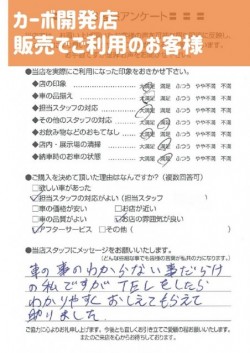 カーボ開発店
販売でご利用のお客様
アンケート
●当店を実際にご利用になった印象をおきかせ下さい。
◆店の印象 大満足 満足 ふつう やや不満 不満
◆車の品揃え 大満足 満足 ふつう やや不満 不満
◆担当スタッフの対応 大満足 満足 ふつう やや不満 不満
◆その他のスタッフの対応 大満足 満足 ふつう やや不満 不満
◆お飲み物などのおもてなし 大満足 満足 ふつう やや不満 不満
◆店内・展示場の清掃 大満足 満足 ふつう やや不満 不満
◆納車時のお車の状態 大満足 満足 ふつう やや不満 不満
●ご購入を決めて頂いた理由はなんですか?（複数回答可）
□欲しい車があった
□担当スタッフの対応がよい（担当スタッフ
□車の価格が安い □お店が近い
□車の品質がよい □お店の雰囲気が良い
□アフターサービス □その他（
●当店スタッフにメッセージをお願いいたします。
車の事のわからない事だらけ
の私ですが TELをしたら
わかりやすく おしえてもらえて
助りました。
またのご来店を心からお待ちしております。